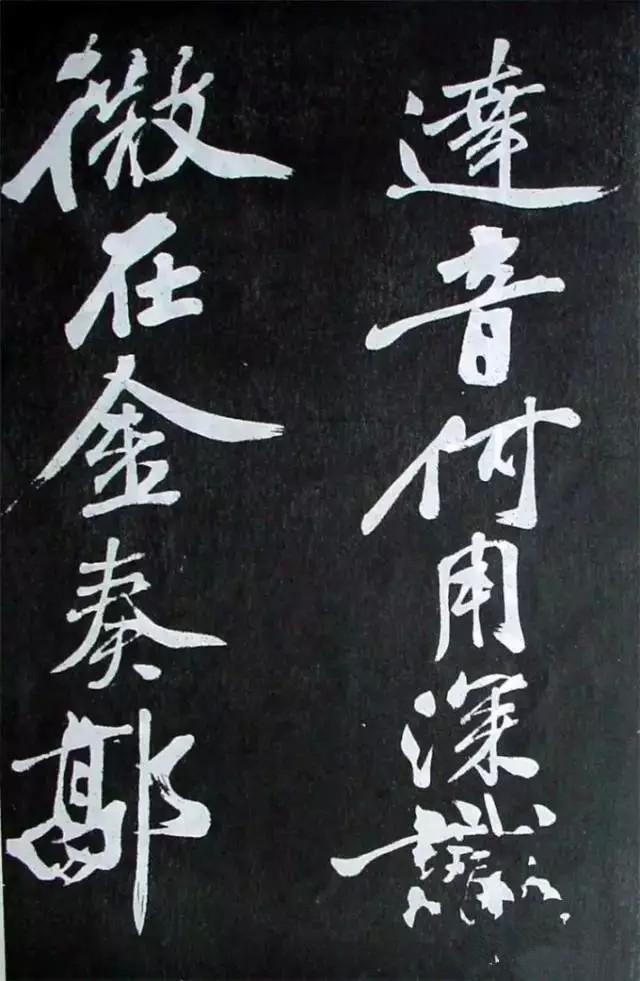 達音何用深識
微在金奏郭